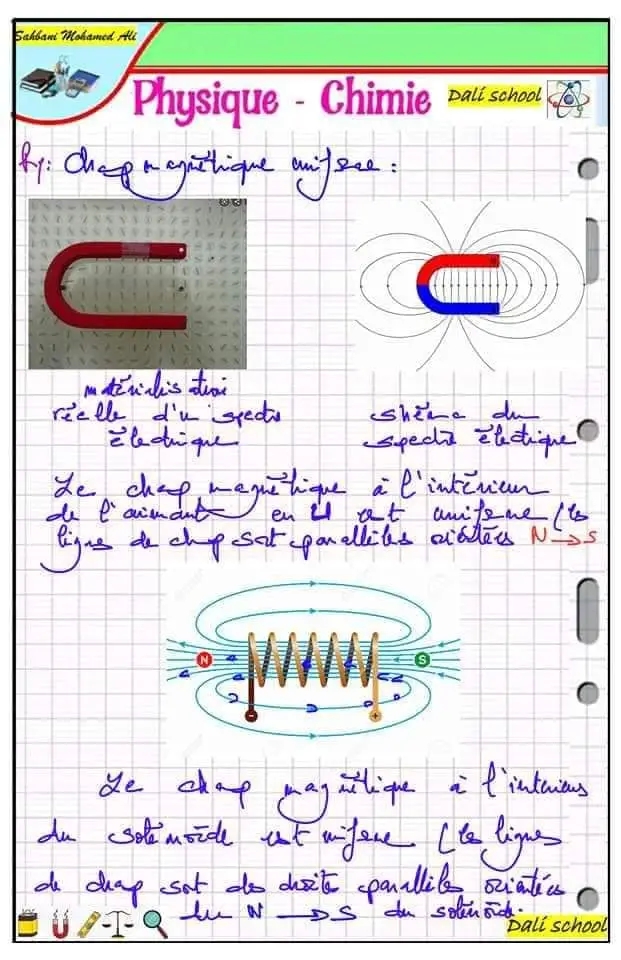 Sahbani Mohamed Ali
Physique - Chimie
Dali school
Rq: Champ magnétique uniforme :
matérialisation
réelle d'un spectre
électrique
shéma du
spectre électrique
Le champ magnétique à l'intérieur
de l'aimant en U est uniforme (les
lignes de champ sont parallèles orientées N → S
N
S
-
+
Le champ magnétique à l'intérieur
du solénoïde est uniforme (les lignes
de champ sont des droites parallèles orientées
du N → S du solénoïde.
Dali school